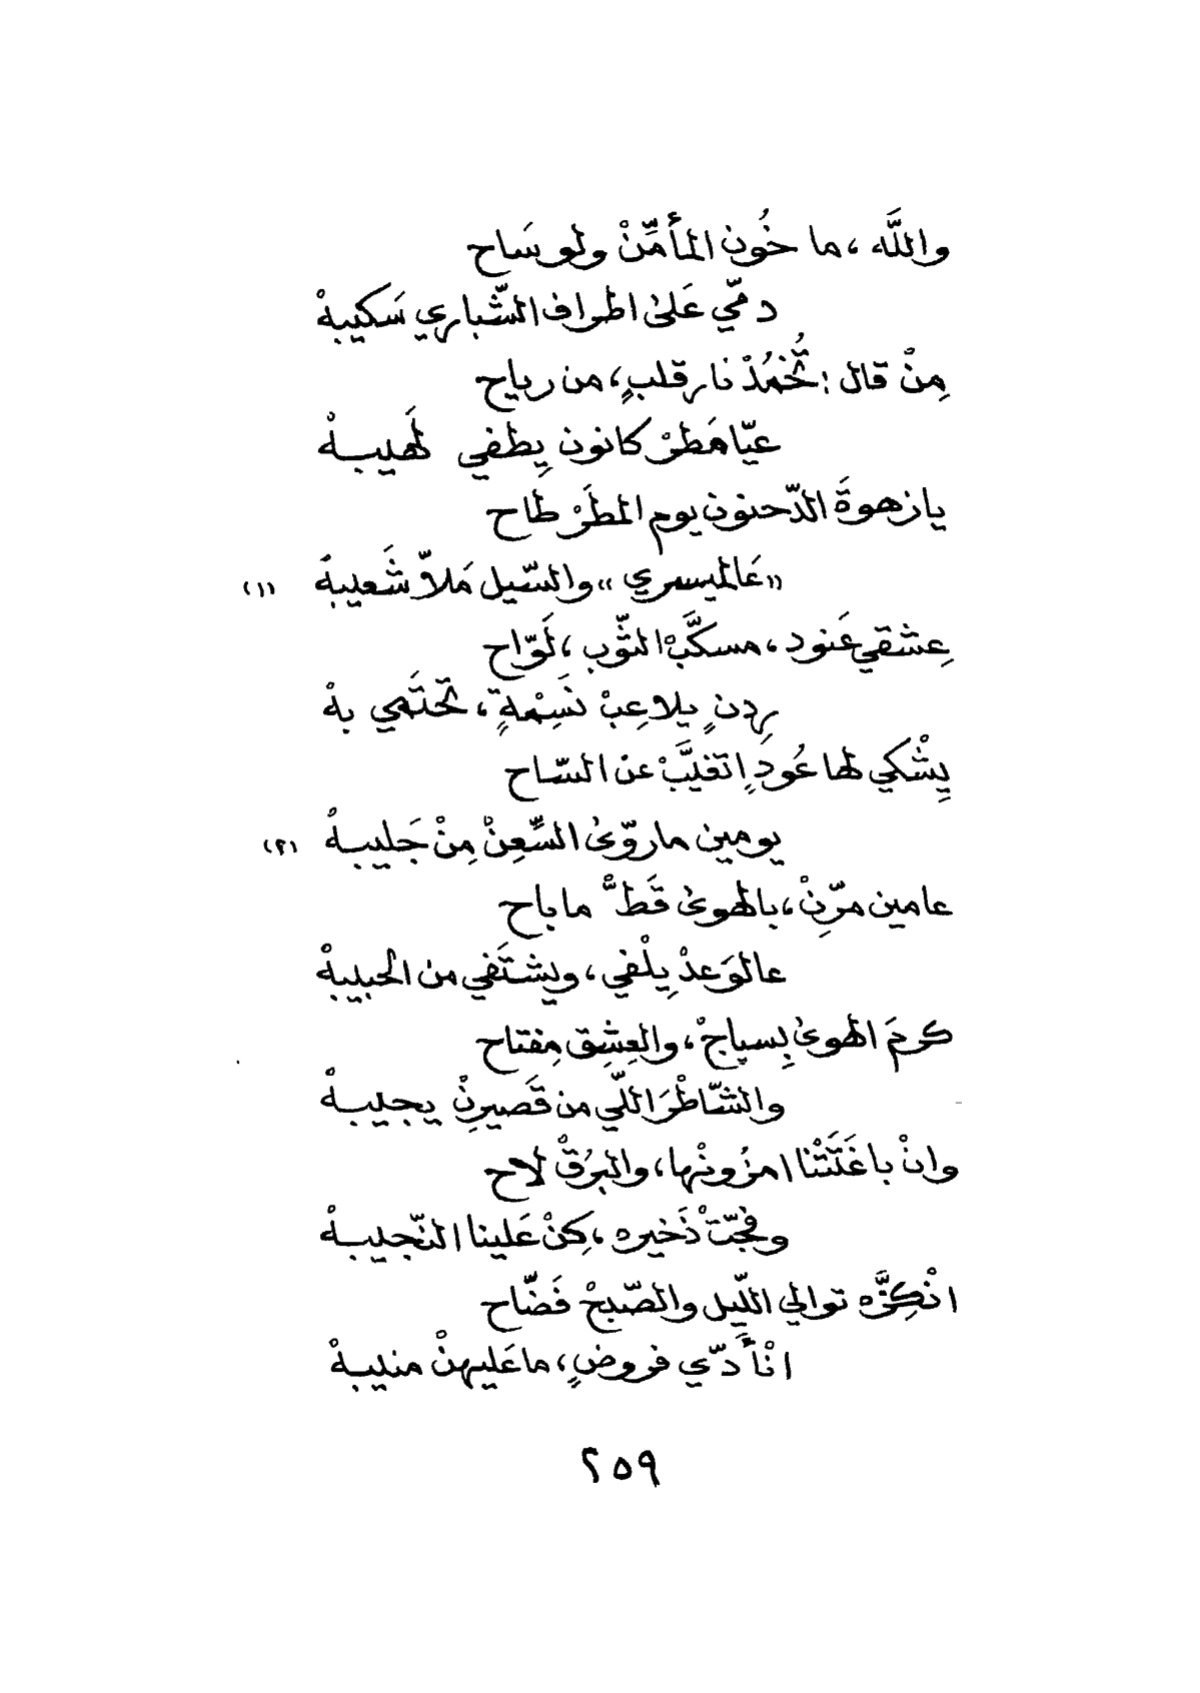 واللَّه ، ما خُون المأمِّنْ ولو سَاح
دمّي عَلىٰ اطراف الشّباري سَكيبهْ
مِنْ قال : تُخمُدْ نار قلبٍ ، من رياح
عيّا مَطرْ كانون يِطفي لَهيبـهْ
يا زهوةَ الدّحنون يوم المطَرْ طاح
« عَالميسري » والسّيل مَلاّ شَعيبهْ (١)
عِشقي عَنود ، مسكَّبْ الثّوب ، لَوّاح
رِدنٍ يلاعِبْ نَسِمْةٍ ، تحْتَمي بهْ
يِشْكي لها عُودٍ اتغيَّبْ عن السّاح
يومين ماروّىٰ السِّعِنْ مِنْ جَليبـهْ (٢)
عامين مرّنِ ْ، بالهوىٰ قَطّ ما باح
عالوَعدْ يِلْفي ، ويشتَفي من الحبيبهْ
كرمَ الهوىٰ بِسياجْ ، والعِشِق مِفتاح
والشّاطْرَ اللّي من قَصيرنِ ْ يجيبـهْ
وانْ باغَتَتْنا امزُونْها ، والبرُقْ لاح
وفجّتْ ذَخيره ، كِنْ عَلينا النّجيبـهْ
انْكِزَّه توالي اللّيل والصّبحْ فَضّاح
انْأَدّي فروضٍ ، ما عَليهنْ منيبهْ
٢٥٩